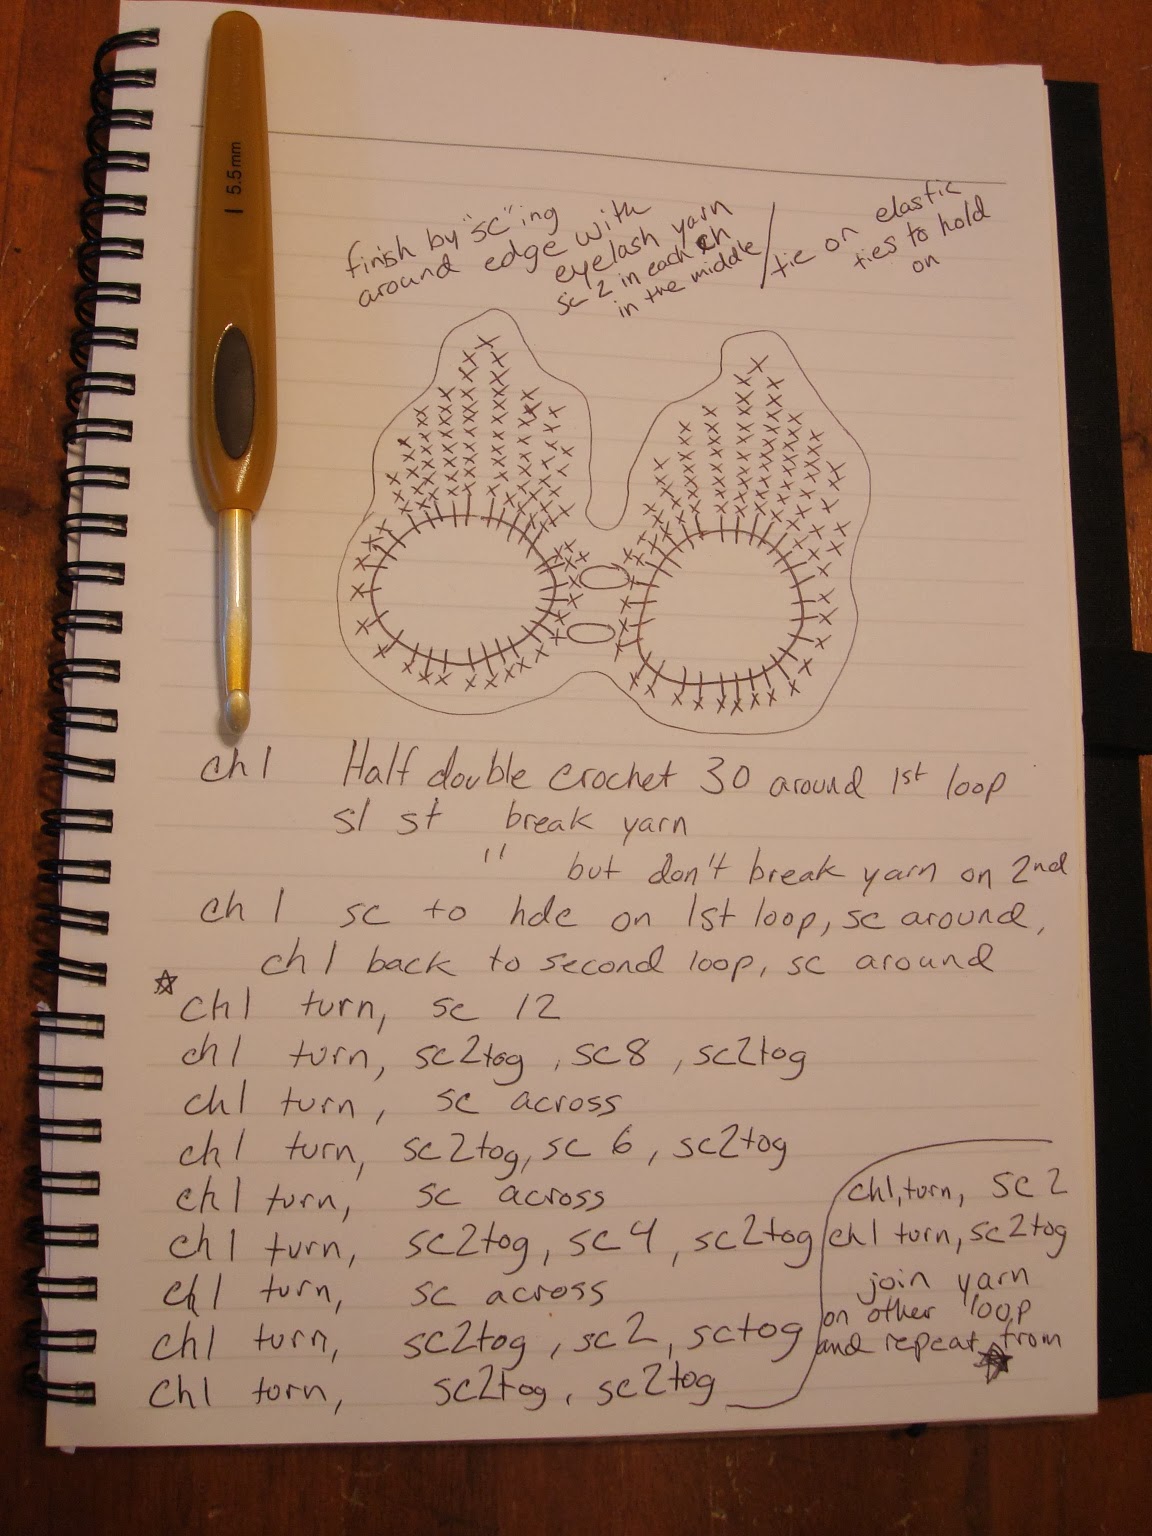 I 5.5mm
finish by "sc"ing
around edge with
eyelash yarn
sc 2 in each ch
in the middle
/ tie on elastic
ties to hold
on
ch 1 Half double crochet 30 around 1st loop
sl st break yarn
" but don't break yarn on 2nd
ch 1 sc to hdc on 1st loop, sc around,
ch 1 back to second loop, sc around
☆ ch 1 turn, sc 12
ch 1 turn, sc2tog, sc 8, sc2tog
ch 1 turn, sc across
ch 1 turn, sc2tog, sc 6, sc2tog
ch 1 turn, sc across
ch 1 turn, sc2tog, sc 4, sc2tog
ch 1 turn, sc across
ch 1 turn, sc2tog, sc 2, sctog
ch 1 torn, sc2tog, sc2tog
ch 1, turn, sc 2
ch 1 turn, sc2tog
join yarn
on other loop
and repeat from
★